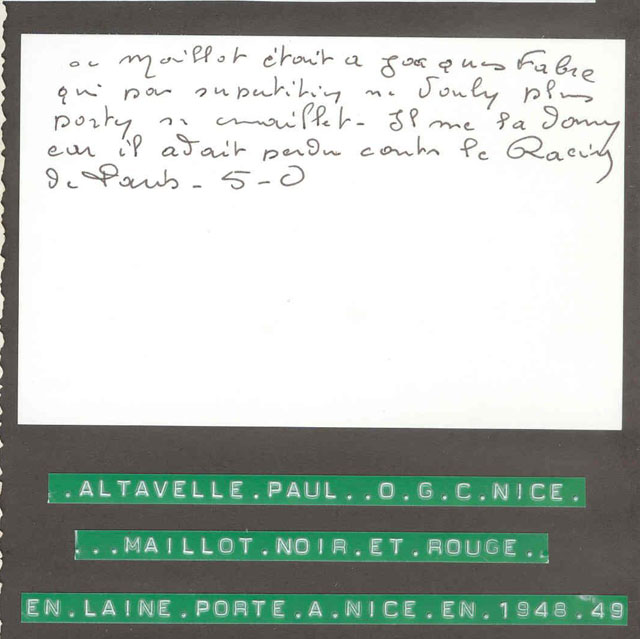 ce maillot était a Jacques Fabre
qui par supertition ne voulu plus
porté ce maillot - Il me la donné
car il avait perdu contre le Racing
de Paris - 5-0
.ALTAVELLE.PAUL..O.G.C.NICE.
...MAILLOT.NOIR.ET.ROUGE..
EN.LAINE.PORTE.A.NICE.EN.1948.49